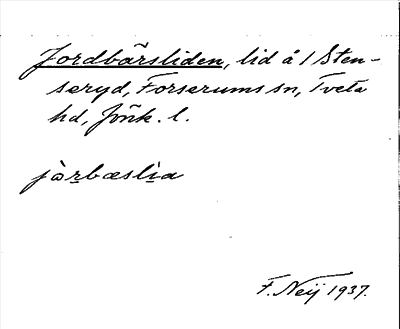 Jordbärsliden, lid å 1 Sten-
seryd, Forserums sn, Tveta
hd, Jönk. l.
jo̱ṟbæsli̱a
F. Neij 1937.